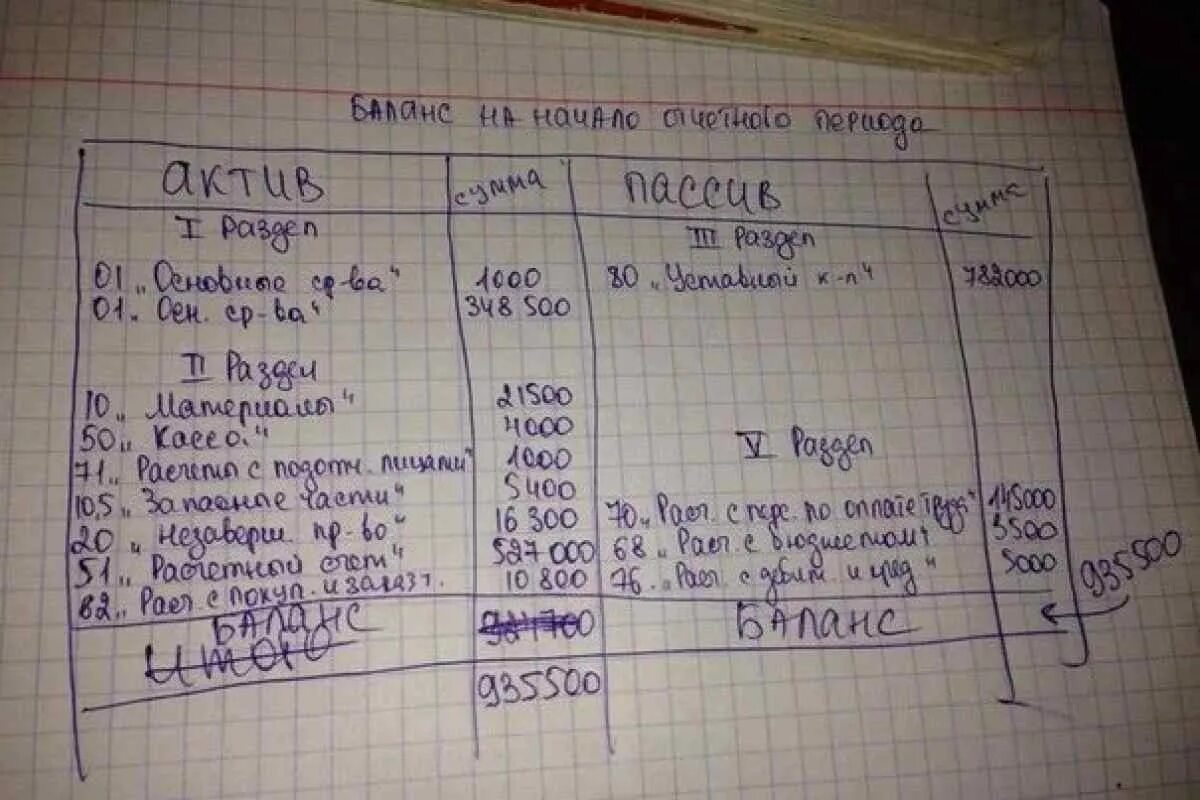 Баланс на начало отчетного периода
Актив сумма Пассив сумма
I Раздел III Раздел
01 „Основные ср-ва“ 1000 80 „Уставный к-л“ 782000
01 „Осн. ср-ва“ 348 500
II Раздел
10 „Материалы“ 21500
50 „Касса“ 4000 V Раздел
71 „Расчеты с подотч. лицами“ 1000
105 „Запасные части“ 5400 70 „Расч. с перс. по оплате труда“ 145000
20 „Незаверш. пр-во“ 16 300 68 „Расч. с бюджетом“ 3500
51 „Расчетный счет“ 527 000 76 „Расч. с дебит. и кред“ 5000
62 „Расч. с покуп. и заказ. 10 800 935 500
Баланс Баланс
Итого
935500